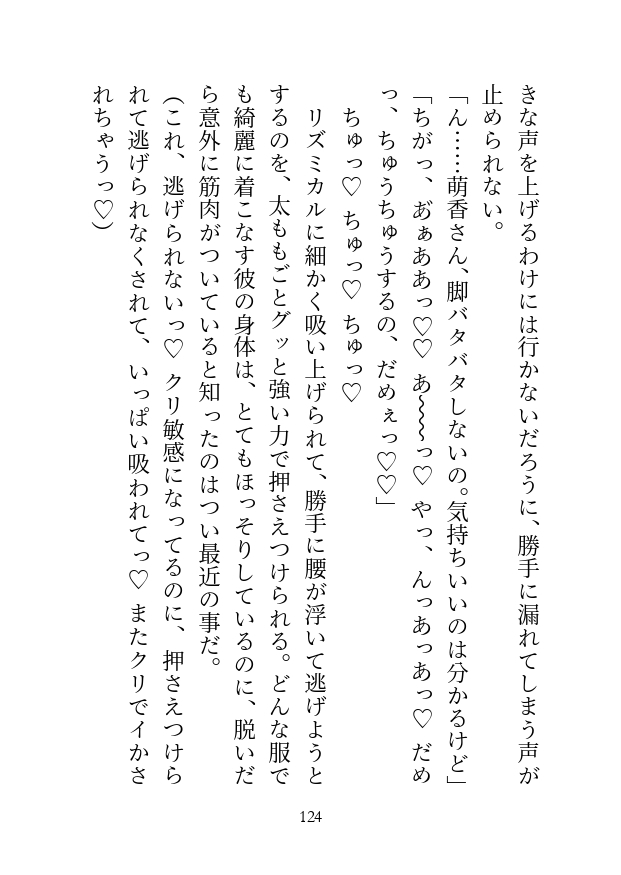 きな声を上げるわけには行かないだろうに、勝手に漏れてしまう声が
止められない。
「ん……萌香さん、脚バタバタしないの。気持ちいいのは分かるけど」
「ちがっ、あ゙ぁああっ♡♡ あ〜〜〜っ♡ やっ、んっあっあっ♡ だめ
っ、ちゅうちゅうするの、だめぇっ♡♡」
ちゅっ♡ ちゅっ♡ ちゅっ♡
リズミカルに細かく吸い上げられて、勝手に腰が浮いて逃げようと
するのを、太ももごとグッと強い力で押さえつけられる。どんな服で
も綺麗に着こなす彼の身体は、とてもほっそりしているのに、脱いだ
ら意外に筋肉がついていると知ったのはつい最近の事だ。
(これ、逃げられないっ♡ クリ敏感になってるのに、押さえつけら
れて逃げられなくされて、いっぱい吸われてっ♡ またクリでイかさ
れちゃうっ♡)
124